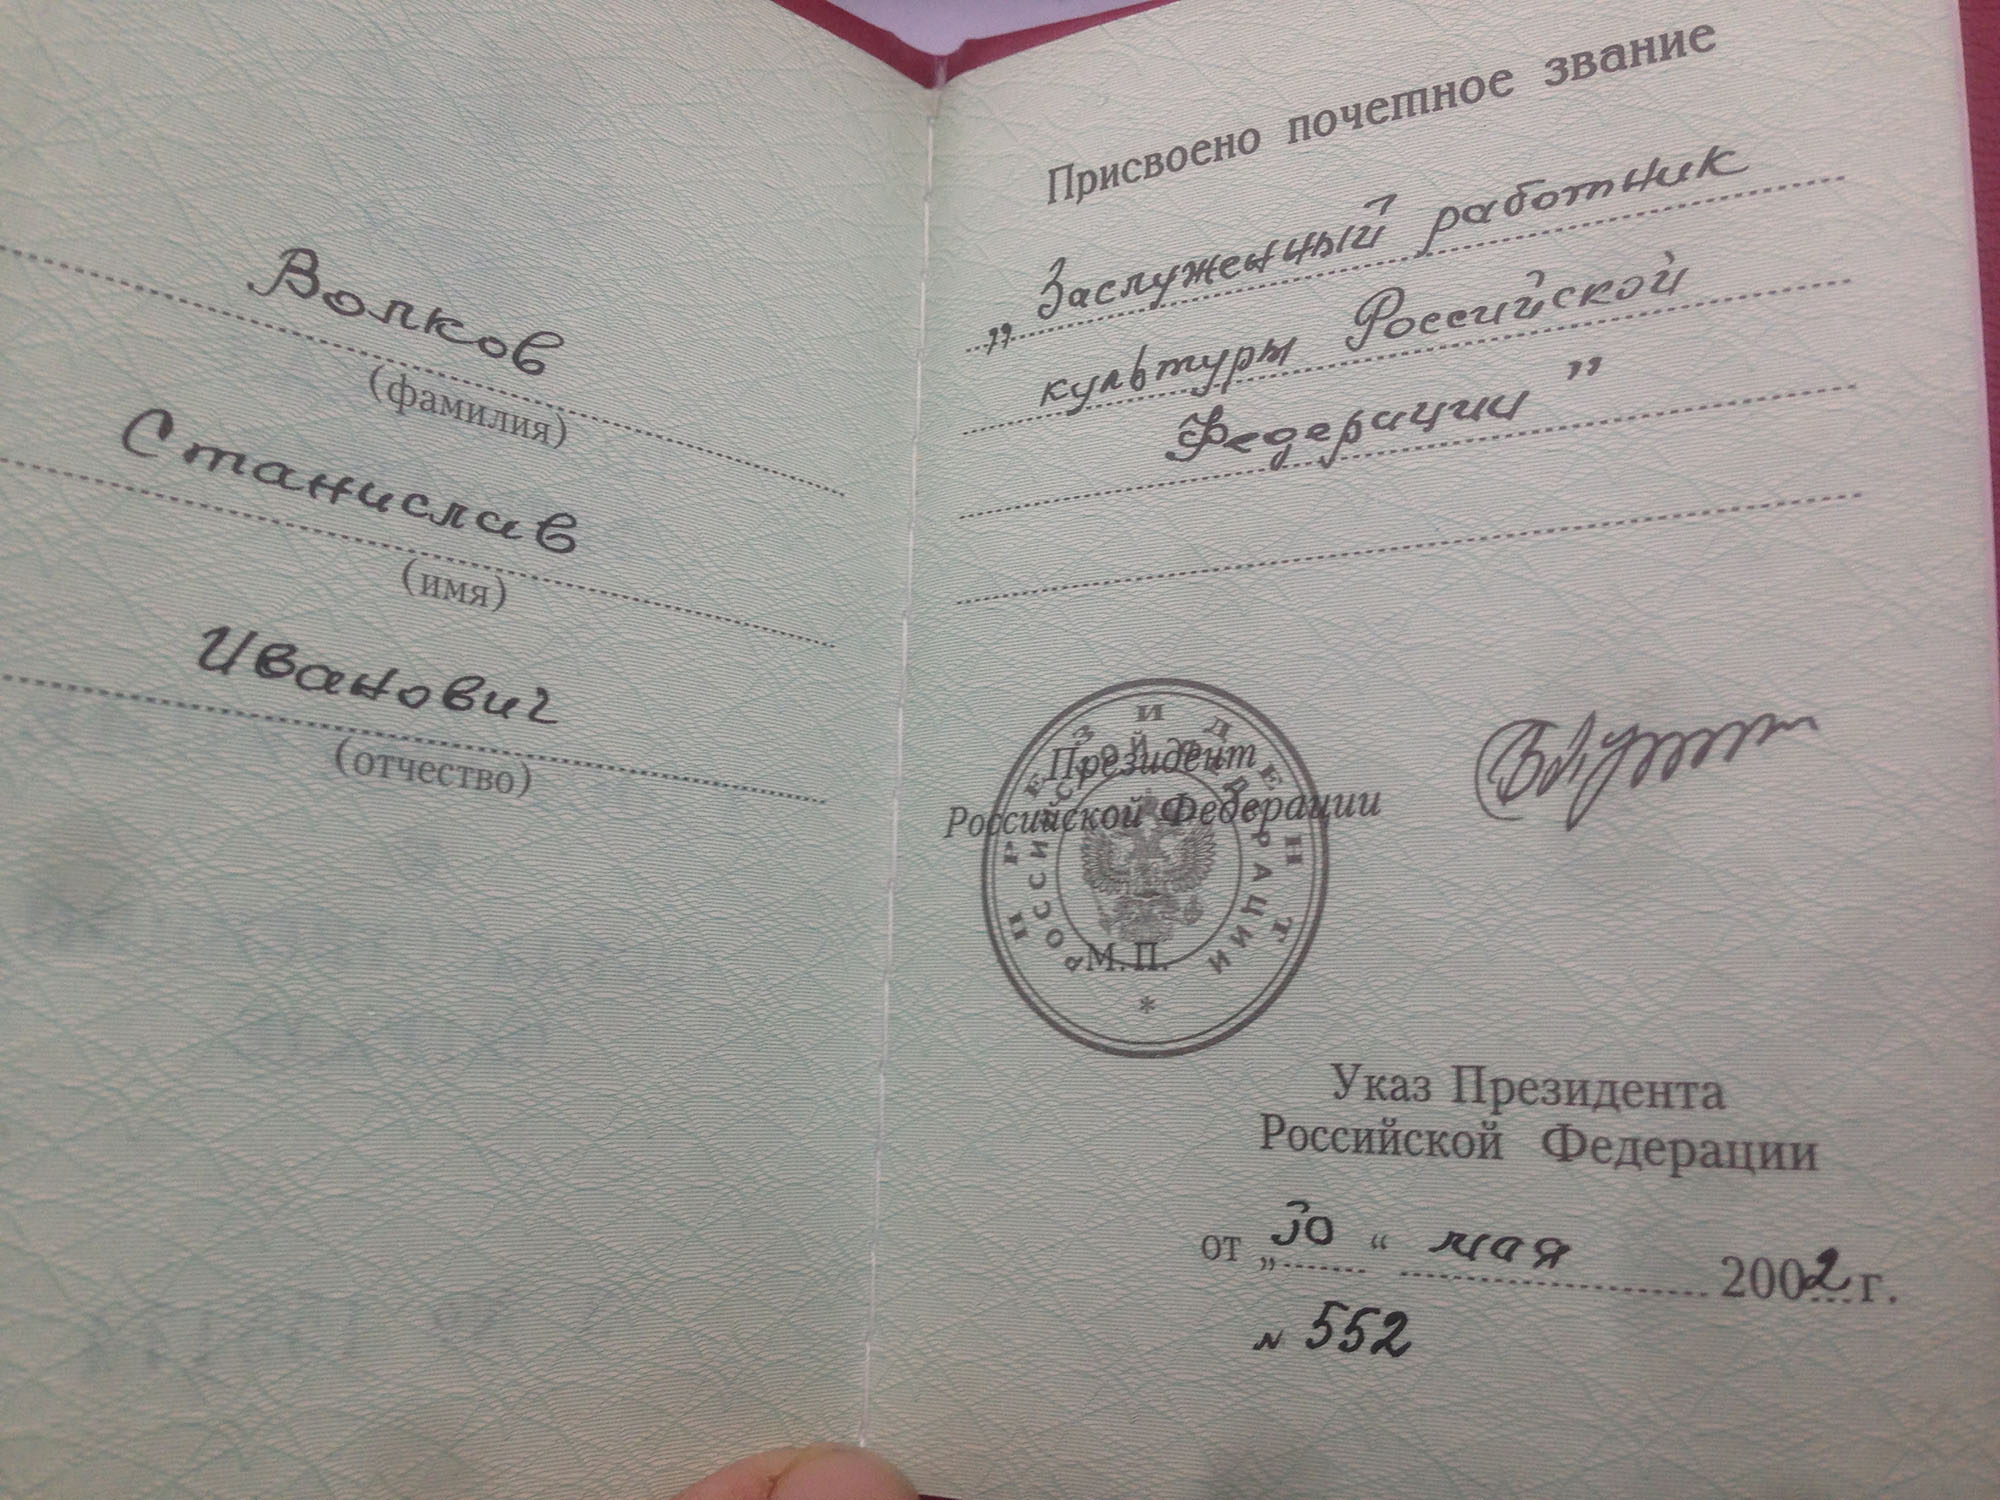 Волков
(фамилия)
Станислав
(имя)
Иванович
(отчество)
Присвоено почетное звание
„Заслуженный работник
культуры Российской
Федерации”
Президент
Российской Федерации
ПРЕЗИДЕНТ
РОССИЙСКОЙ ФЕДЕРАЦИИ
*
М.П.
Указ Президента
Российской Федерации
от „30“ мая 2002 г.
N 552